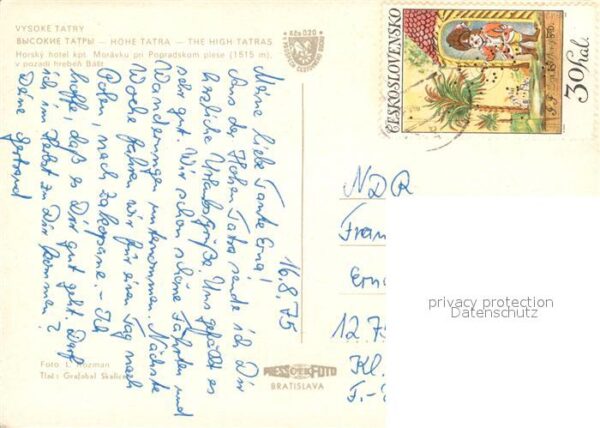 VYSOKÉ TATRY
ВЫСОКИЕ ТАТРЫ — HOHE TATRA — THE HIGH TATRAS
Horský hotel kpt. Morávku pri Popradskom plese (1515 m),
v pozadí hrebeň Bášt
Kčs 0,20
ČESKOSLOVENSKO
30 hal.
16.8.75
Meine liebe Tante Erna!
Aus der Hohen Tatra sende ich Dir
herzliche Urlaubsgrüße. Uns gefällt es
sehr gut. Wir schon schöne Fahrten und
Wanderungen unternommen. Nächste
Woche fahren wir für einen Tag nach
Polen, nach Zakopane. – Ich
hoffe, daß es Dir gut geht. Darf
ich im Herbst zu Dir kommen?
Deine Gertraud
NDR
Fran
Erna
1275
Kl.
F.-
privacy protection
Datenschutz
Foto L. Rozman
Tlač: Grafobal Skalica
PRESSFOTO
BRATISLAVA